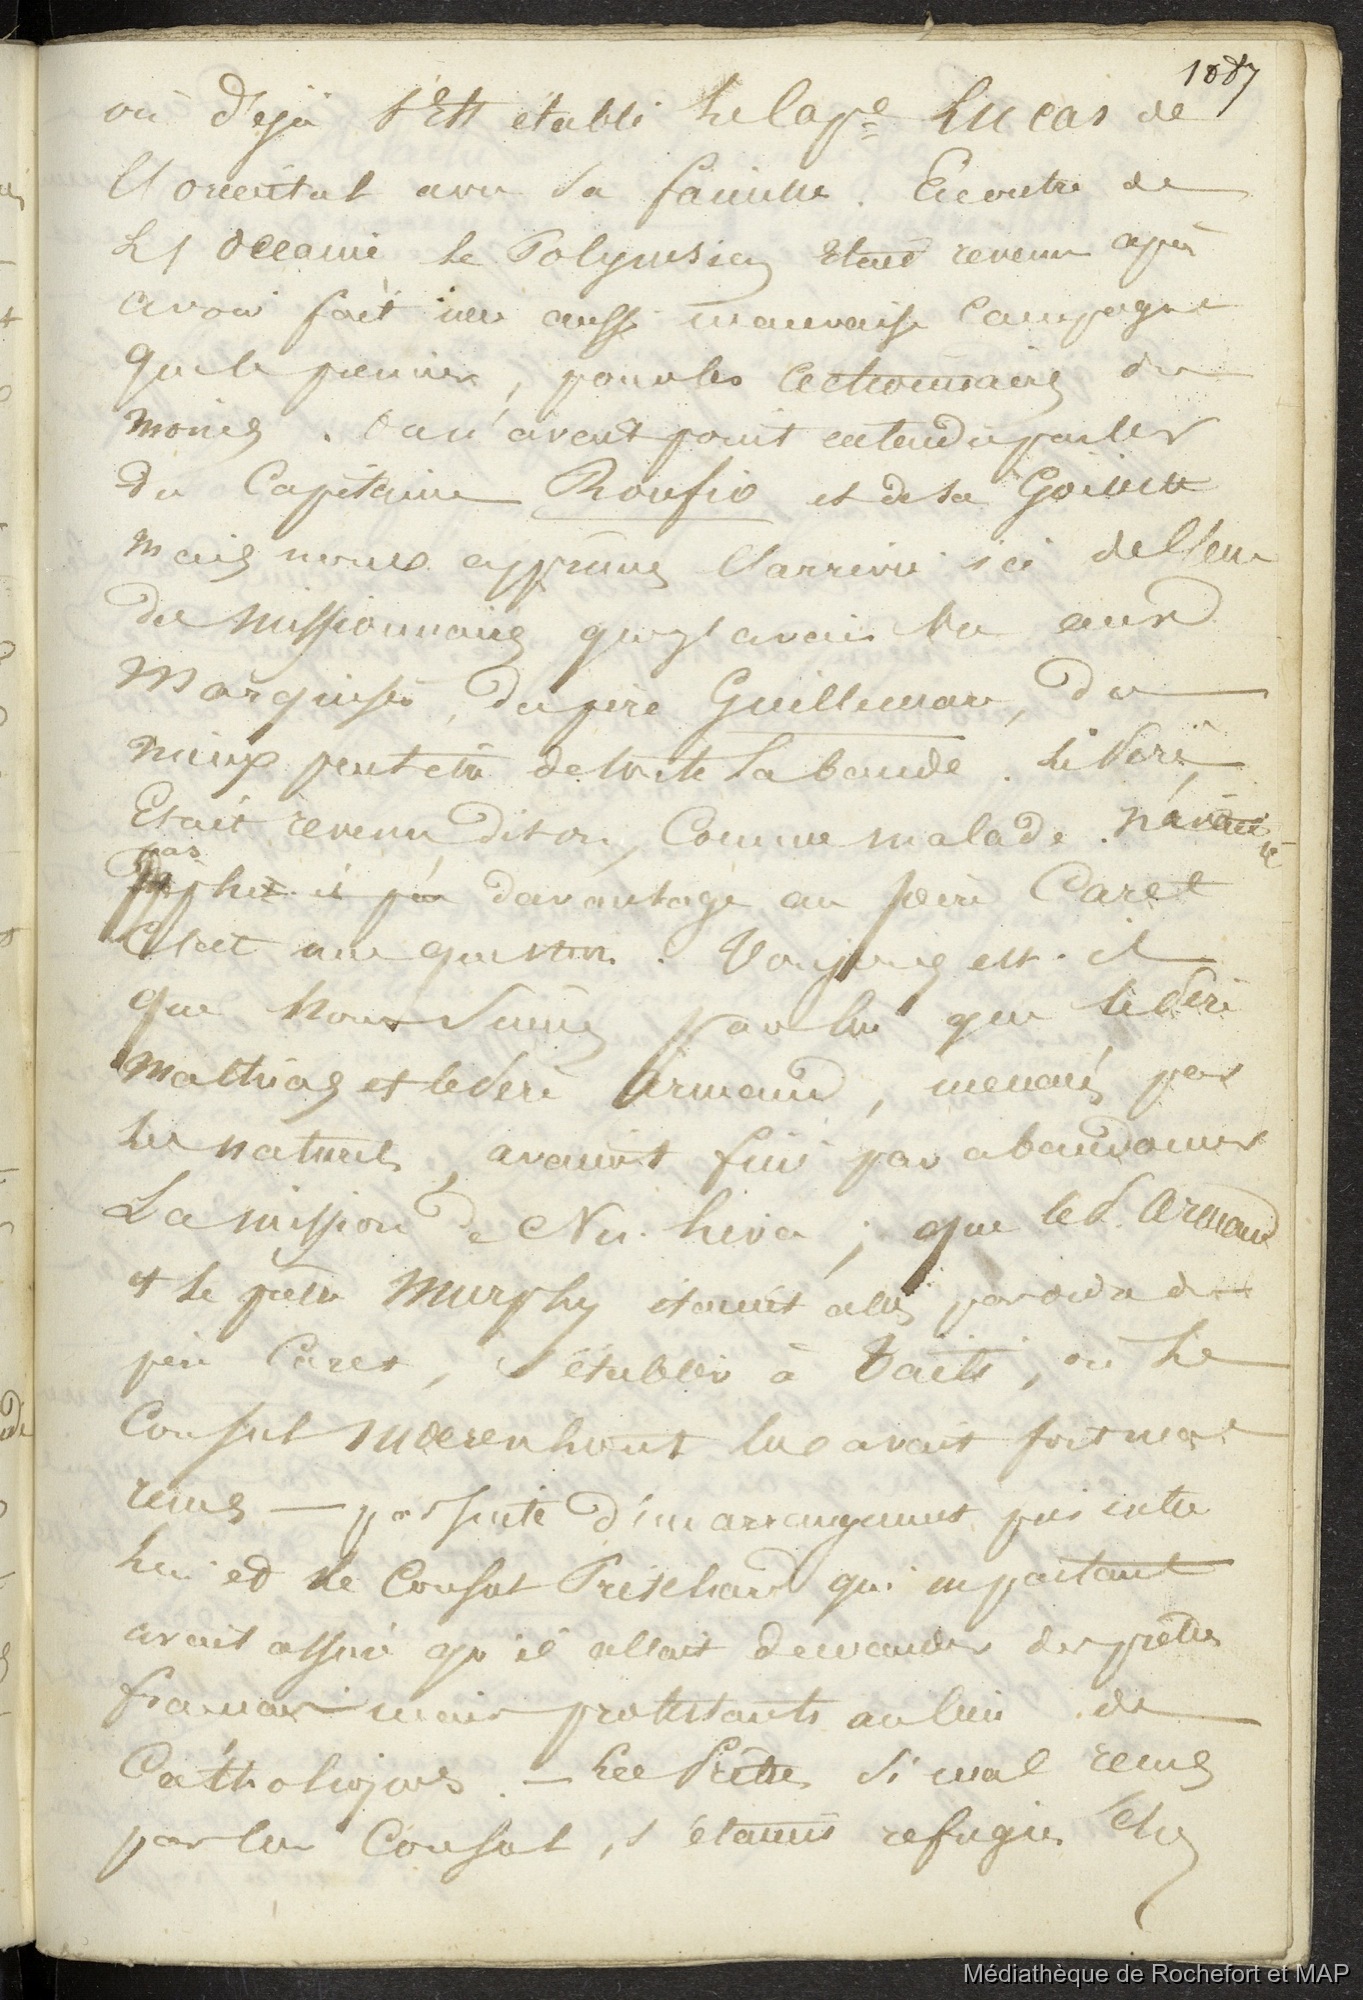 1087
où déjà s'est établi le Cap.e Lucas de
l'oriental avec sa famille. En outre de
L'océanie le Polynésien était revenu après
avoir fait une aussi mauvaise campagne
que le premier, pour les actionnaires du
moins. On n'avait point entendu parler
du Capitaine Roufio et de sa Goilette
mais nous apprimes l'arrivée ici de l'un
des missionnaires que j'avais vu aux
Marquises, du père Guillemar, du
mieux peut être de toute la bande. Le Père
Etait revenu dit on, Comme malade. n'avait
pas davantage au père Caret
C'est une question. Toujours est-il
que nous sumes par lui que le Père
Mathias et le Père Armand, menacés par
les naturels, avaient fini par abandonner
La mission de Nu-hiva ; que le P. Armand
et le père Murphy étaient allés par ordre du
père Caret, s'établir à Taiti, où le
Consul Moerenhout les avait fort mal
reçus — par suite d'un arrangement pris entre
lui et le Consul Pritchard qui en partant
avait assuré qu'il allait demander des prêtres
français mais protestants au lieu de
Catholiques. — Les Prêtres si mal reçus
par leur Consul, s'étaient refugiés chez
Médiathèque de Rochefort et MAP